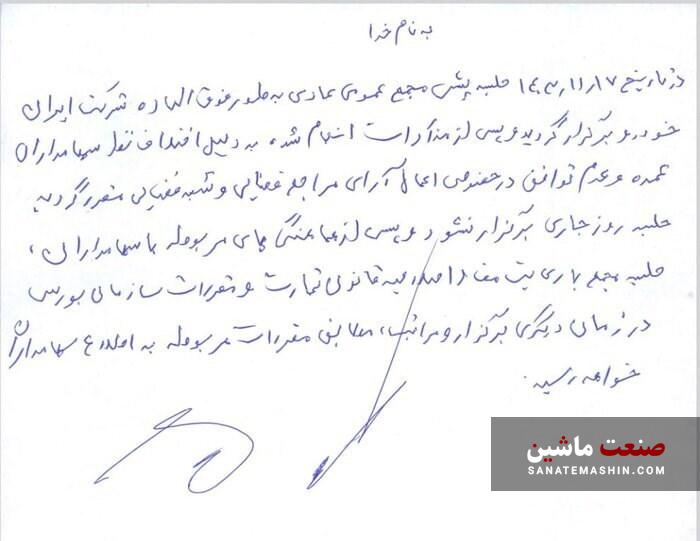 به نام خدا
در تاریخ ۱۴۰۳/۱۱/۱۷ جلسه پیش مجمع عمومی عادی به طور فوق العاده شرکت ایران
خودرو برگزار گردید و پس از مذاکرات انجام شده، به دلیل اختلاف نظر سهامداران
عمده و عدم توافق در خصوص اعمال آرای مراجع قضایی و شبه قضایی مقرر گردید
جلسه روز جاری برگزار نشود و پس از هماهنگی های مربوطه با سهامداران،
جلسه مجمع با رعایت مفاد اصلاحیه قانون تجارت و مقررات سازمان بورس
در زمان دیگری برگزار و مراتب، مطابق مقررات مربوطه به اطلاع سهامداران
خواهد رسید.
صنعت ماشین
SANATEMASHIN.COM